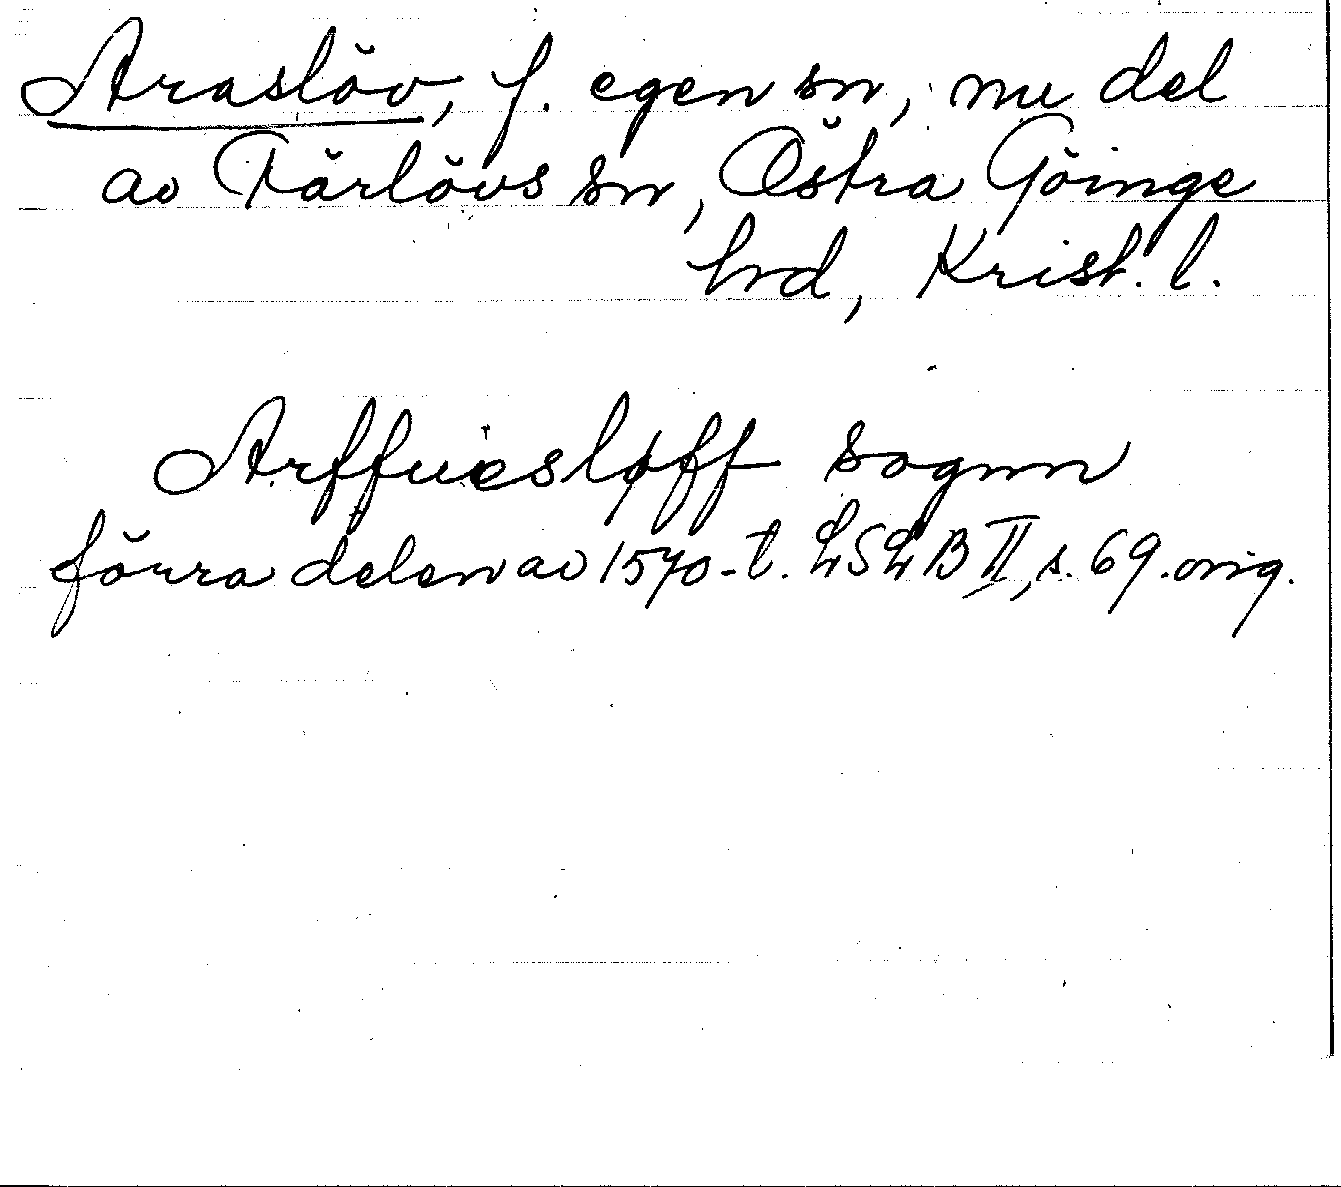 Araslöv, f. egen sn, nu del
av Färlövs sn, Östra Göinge
hd, Krist. l.
Arffuesløff sognn
förra delen av 1570-t. LSLB II, s. 69. orig.